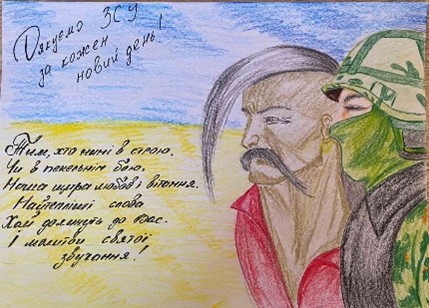 Дякуємо ЗСУ
за кожен
новий день!
Тим, хто нині в строю.
Чи в пекельнім бою,
Наша щира любов і вітання.
Найтепліші слова
Хай долинуть до Вас.
І молитви святої
звучання!